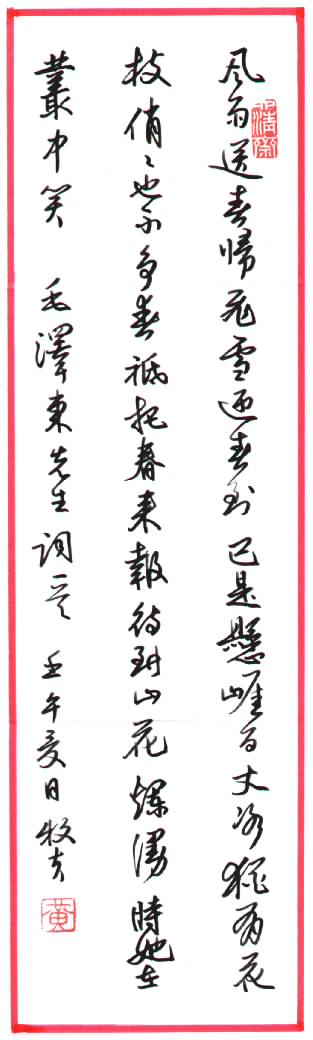 風雨送春歸飛雪迎春到已是懸崖百丈冰猶有花
枝俏〻也不争春祇把春来報待到山花爛漫時她在
叢中笑 毛澤東先生詞一首 壬午夏日牧
黄